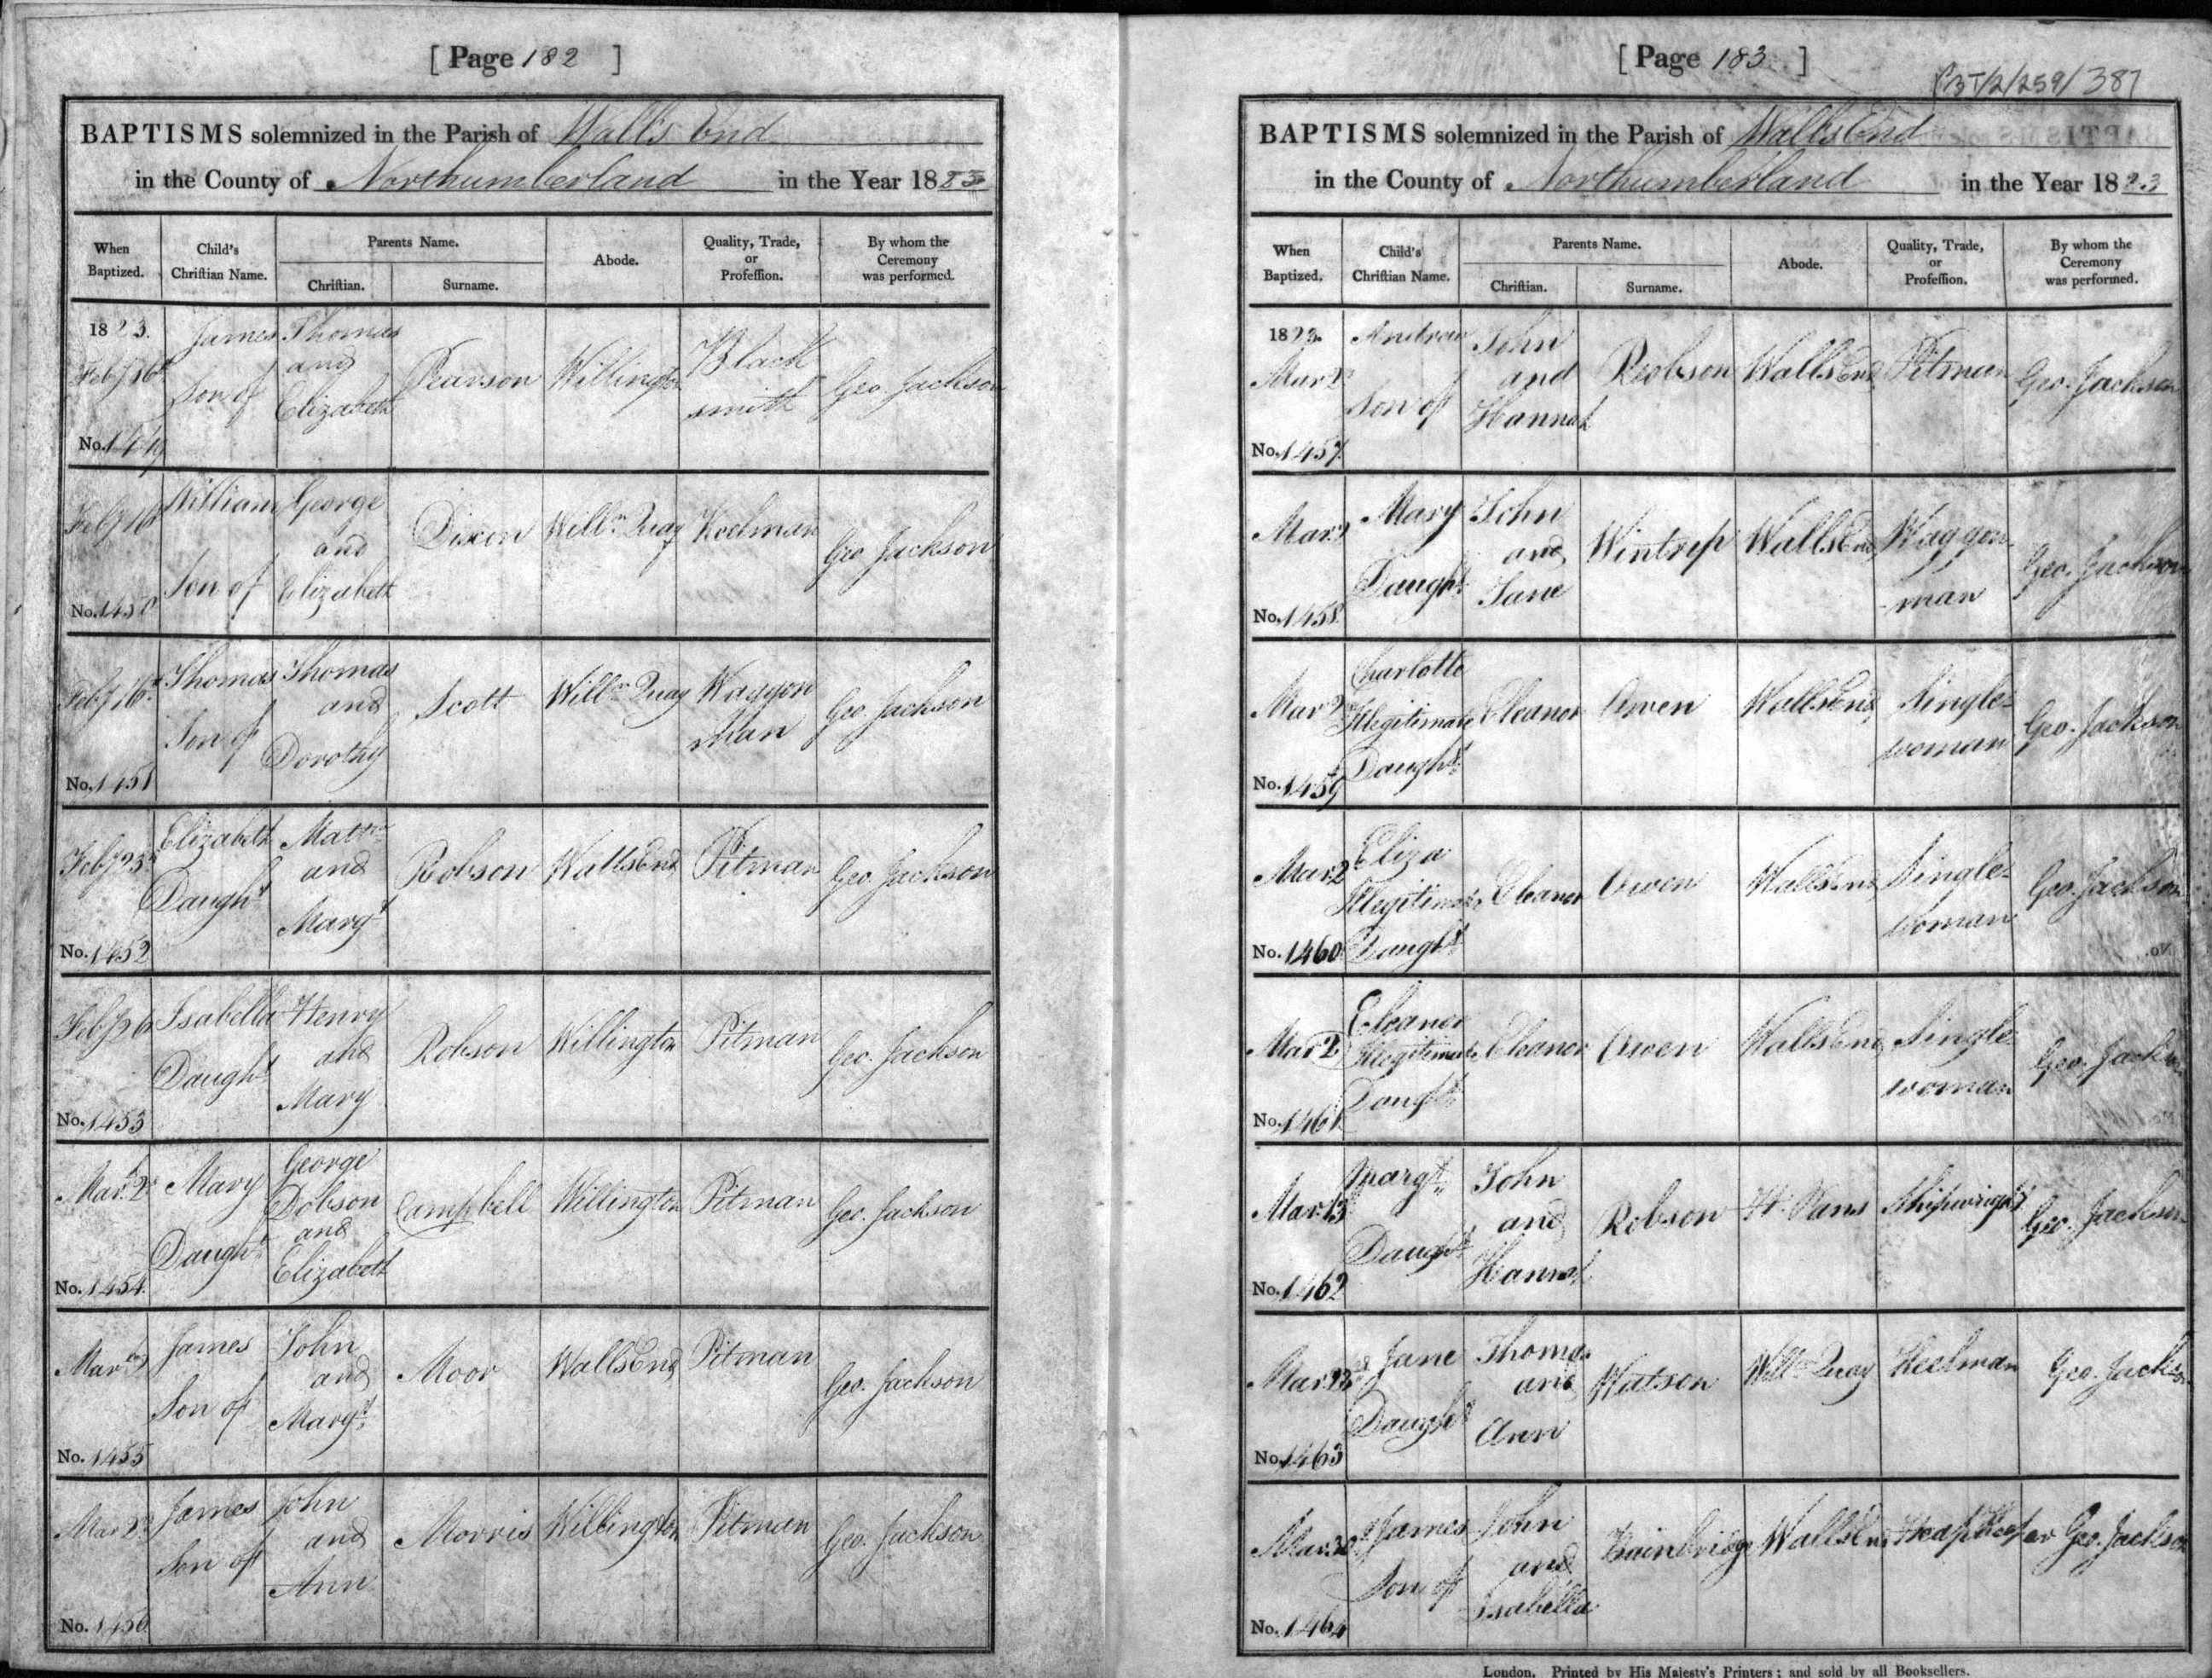 [ Page 182 ]
BAPTISMS solemnized in the Parish of Walls End
in the County of Northumberland in the Year 1823
When Baptized.
Child's Christian Name.
Parents Name.
Christian.
Surname.
Abode.
Quality, Trade, or Profession.
By whom the Ceremony was performed.
1823. Feby 16 James Son of Thomas and Elizabeth Pearson Willington Black smith Geo. Jackson
No. 1449
Feby 16 William Son of George and Elizabeth Dixon Willn Quay Keelman Geo Jackson
No. 1450
Feby 16 Thomas Son of Thomas and Dorothy Scott Willn Quay Waggon Man Geo Jackson
No. 1451
Feby 23 Elizabeth Daught Mattw and Margt Robson WallsEnd Pitman Geo. Jackson
No. 1452
Feby 26 Isabella Daught Henry and Mary Robson Willington Pitman Geo. Jackson
No. 1453
Mar. 2 Mary Daught George Dobson and Elizabeth Campbell Willington Pitman Geo. Jackson
No. 1454
Mar James Son of John and Margt Moor WallsEnd Pitman Geo. Jackson
No. 1455
Mar 2 James Son of John and Ann Morris Willington Pitman Geo. Jackson
No. 1456
[ Page 183 ]
387
BAPTISMS solemnized in the Parish of WallsEnd
in the County of Northumberland in the Year 1823
When Baptized.
Child's Christian Name.
Parents Name.
Christian.
Surname.
Abode.
Quality, Trade, or Profession.
By whom the Ceremony was performed.
1823. Mar 2 Andrew Son of John and Hannah Robson WallsEnd Pitman Geo. Jackson
No. 1457
Mar Mary Daught John and Jane Wintrip WallsEnd Waggon-man Geo. Jackson
No. 1458
Mar 2 Charlotte Illegitimate Daught Eleanor Owen WallsEnd Single-woman Geo. Jackson
No. 1459
Mar 2 Eliza Illegitimate Daught Eleanor Owen WallsEnd Single-woman Geo. Jackson
No. 1460
Mar 2 Eleanor Illegitimate Daught Eleanor Owen WallsEnd Single-woman Geo. Jackson
No. 1461
Mar. 13 Margt Daught John and Hannah Robson H. Pans Shipwright Geo. Jackson
No. 1462
Mar. 23 Jane Daught Thomas and Ann Watson Willn Quay Keelman Geo. Jackson
No. 1463
Mar. 30 James Son of John and Isabella Bainbridge WallsEnd Heap Keeper Geo. Jackson
No. 1464
London, Printed by His Majesty's Printers; and sold by all Booksellers.